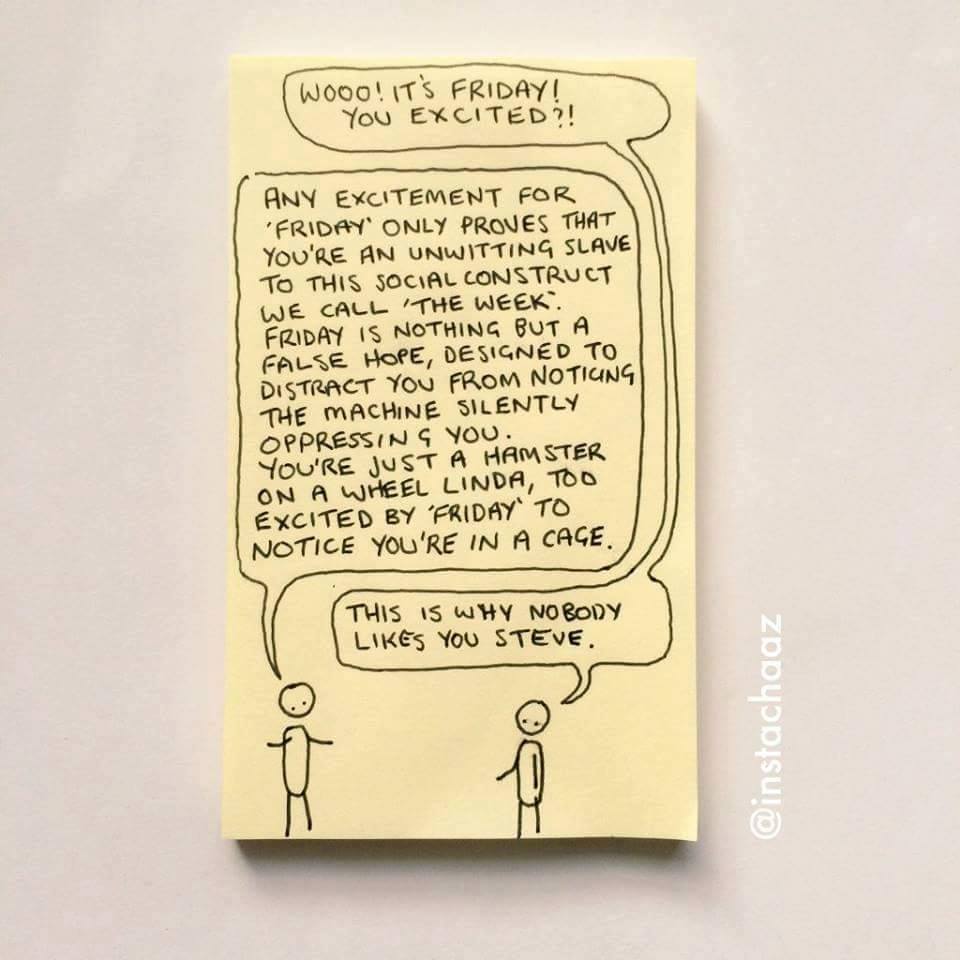 WOOO! IT'S FRIDAY!
YOU EXCITED?!
ANY EXCITEMENT FOR
'FRIDAY' ONLY PROVES THAT
YOU'RE AN UNWITTING SLAVE
TO THIS SOCIAL CONSTRUCT
WE CALL 'THE WEEK'.
FRIDAY IS NOTHING BUT A
FALSE HOPE, DESIGNED TO
DISTRACT YOU FROM NOTICING
THE MACHINE SILENTLY
OPPRESSING YOU.
YOU'RE JUST A HAMSTER
ON A WHEEL LINDA, TOO
EXCITED BY 'FRIDAY' TO
NOTICE YOU'RE IN A CAGE.
THIS IS WHY NOBODY
LIKES YOU STEVE.
@instachaaz